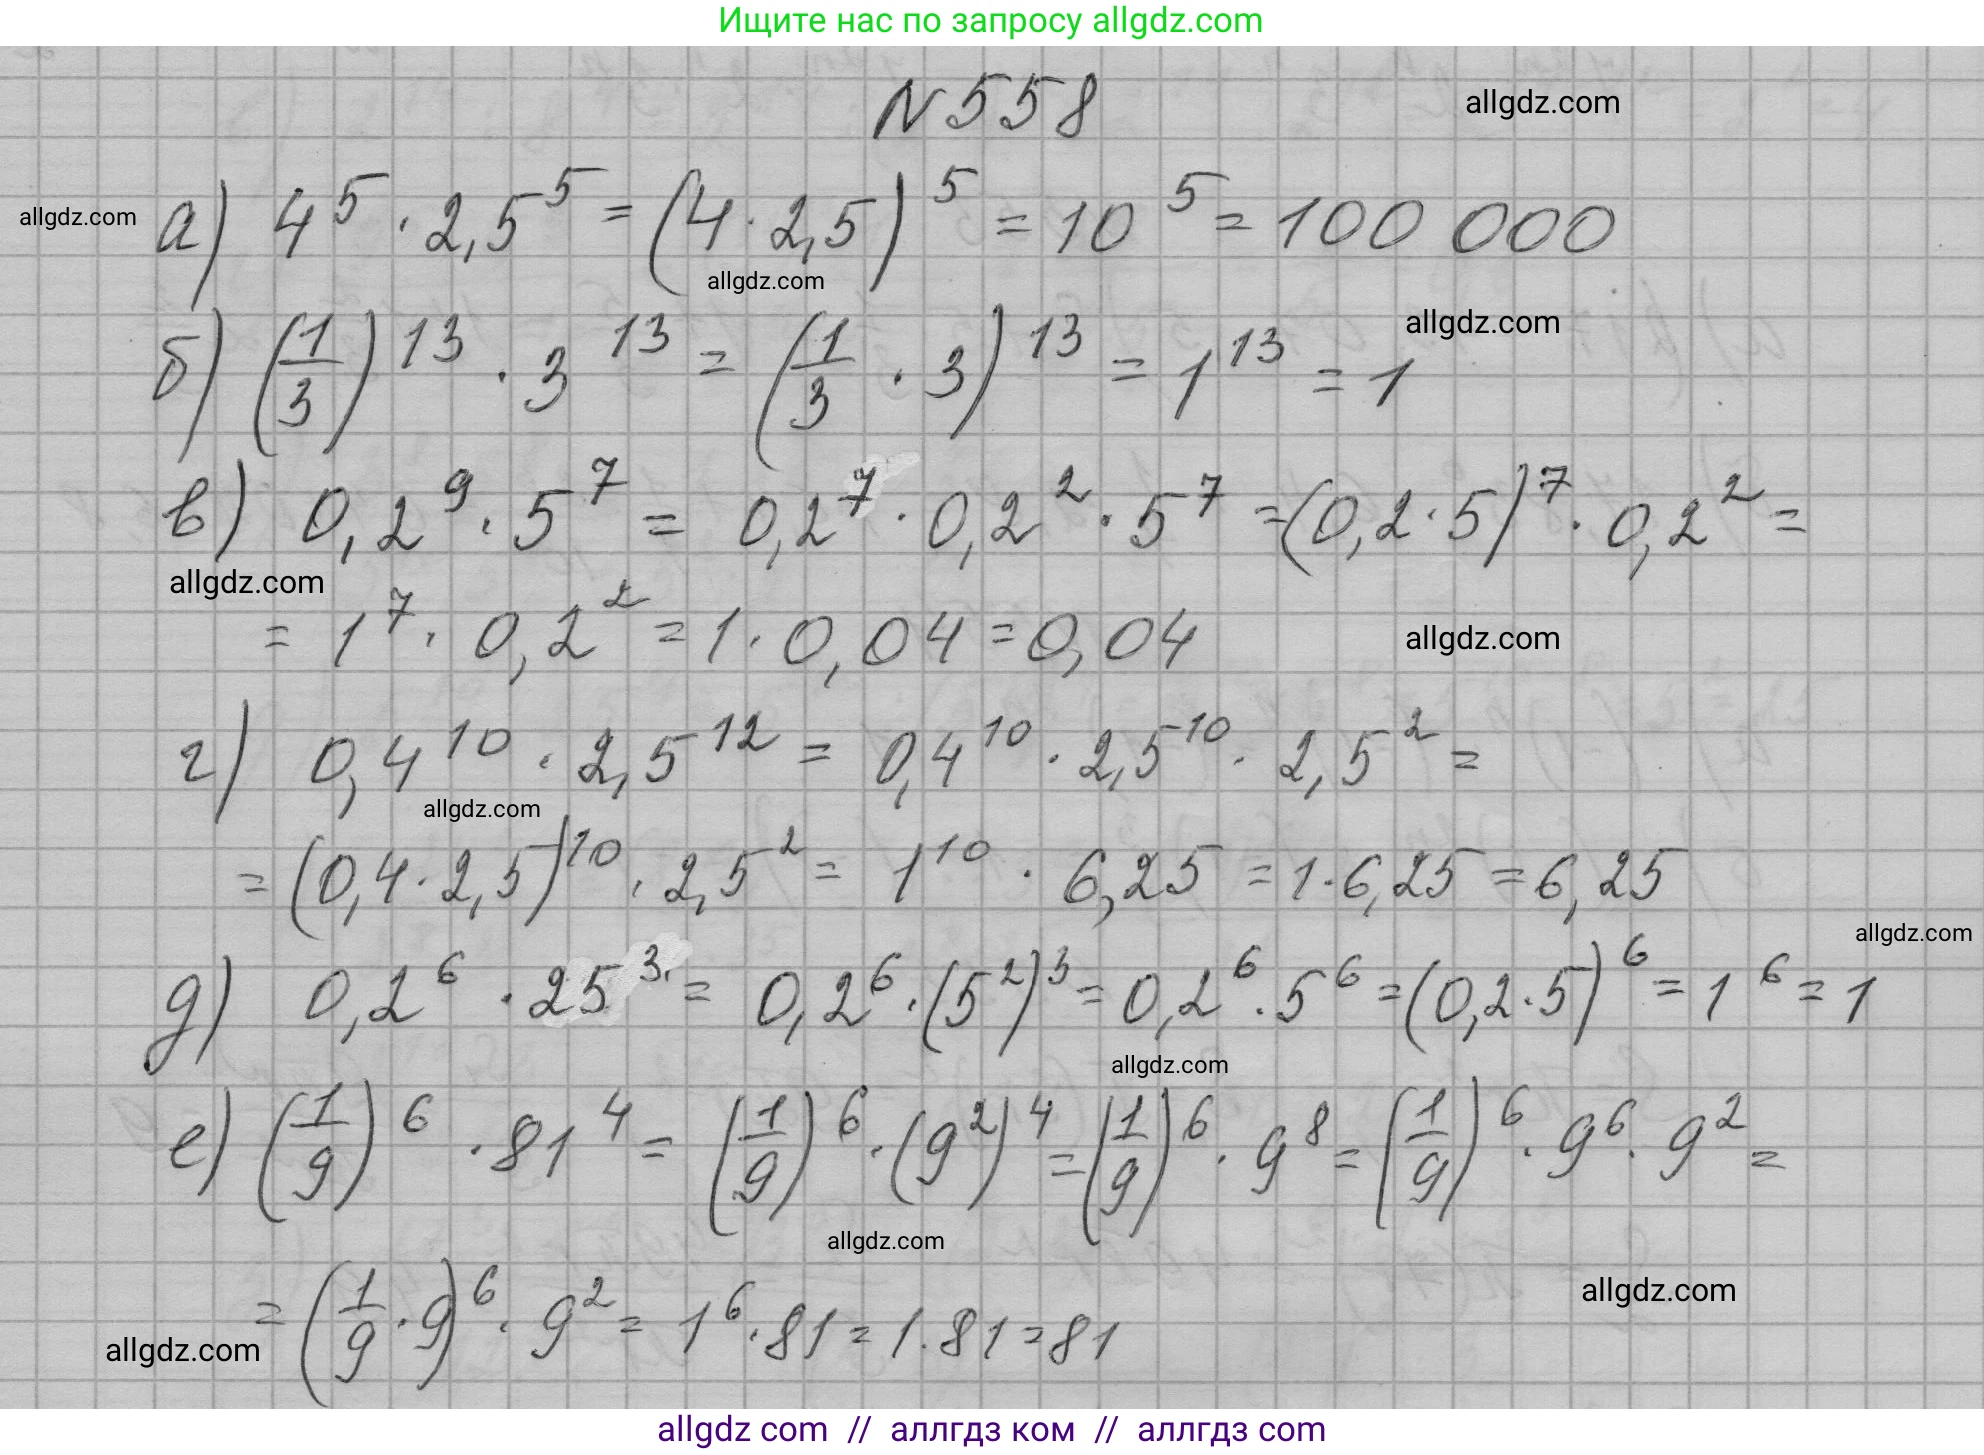 Ищите нас по запросу allgdz.com
N558
allgdz.com
allgdz.com
а) 4⁵ · 2,5⁵ = (4 · 2,5)⁵ = 10⁵ = 100 000
allgdz.com
allgdz.com
б) (1/3)¹³ · 3¹³ = (1/3 · 3)¹³ = 1¹³ = 1
в) 0,2⁹ · 5⁷ = 0,2⁷ · 0,2² · 5⁷ = (0,2 · 5)⁷ · 0,2² =
allgdz.com
= 1⁷ · 0,2² = 1 · 0,04 = 0,04
allgdz.com
г) 0,4¹⁰ · 2,5¹² = 0,4¹⁰ · 2,5¹⁰ · 2,5² =
allgdz.com
= (0,4 · 2,5)¹⁰ · 2,5² = 1¹⁰ · 6,25 = 1 · 6,25 = 6,25
allgdz.com
д) 0,2⁶ · 25³ = 0,2⁶ · (5²)³ = 0,2⁶ · 5⁶ = (0,2 · 5)⁶ = 1⁶ = 1
allgdz.com
е) (1/9)⁶ · 81⁴ = (1/9)⁶ · (9²)⁴ = (1/9)⁶ · 9⁸ = (1/9)⁶ · 9⁶ · 9² =
allgdz.com
allgdz.com
= (1/9 · 9)⁶ · 9² = 1⁶ · 81 = 1 · 81 = 81
allgdz.com
allgdz com // аллгдз ком // аллгдз com